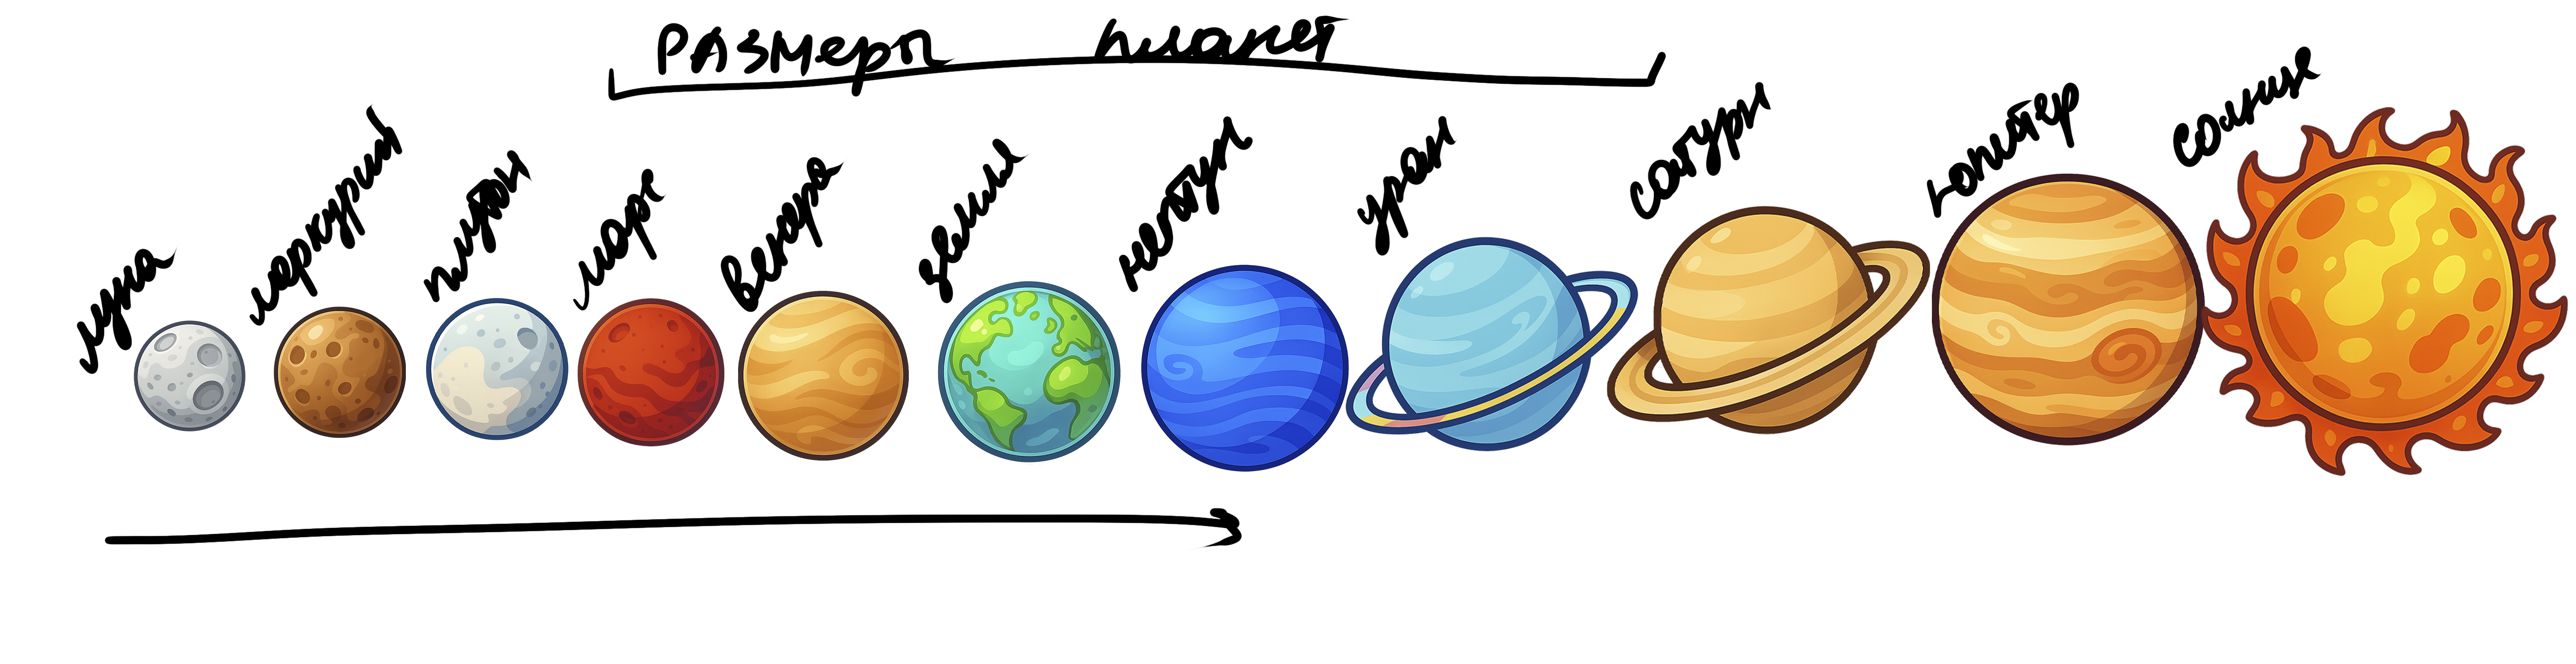 Размеры планет
луна
меркурий
плутон
марс
Венера
земля
нептун
уран
сатурн
юпитер
солнце